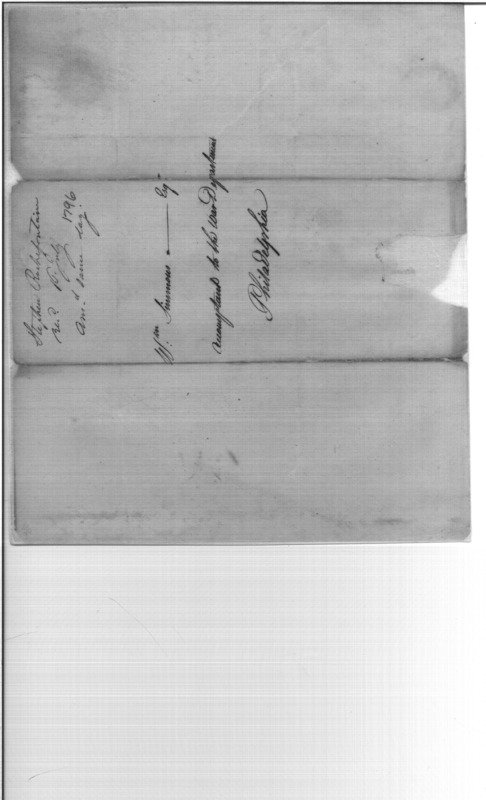 Stephen
rec.d July 1796
Ans.d same day.
Wm. Simmons Esqr.
Accomptant to the War Department
Philadelphia